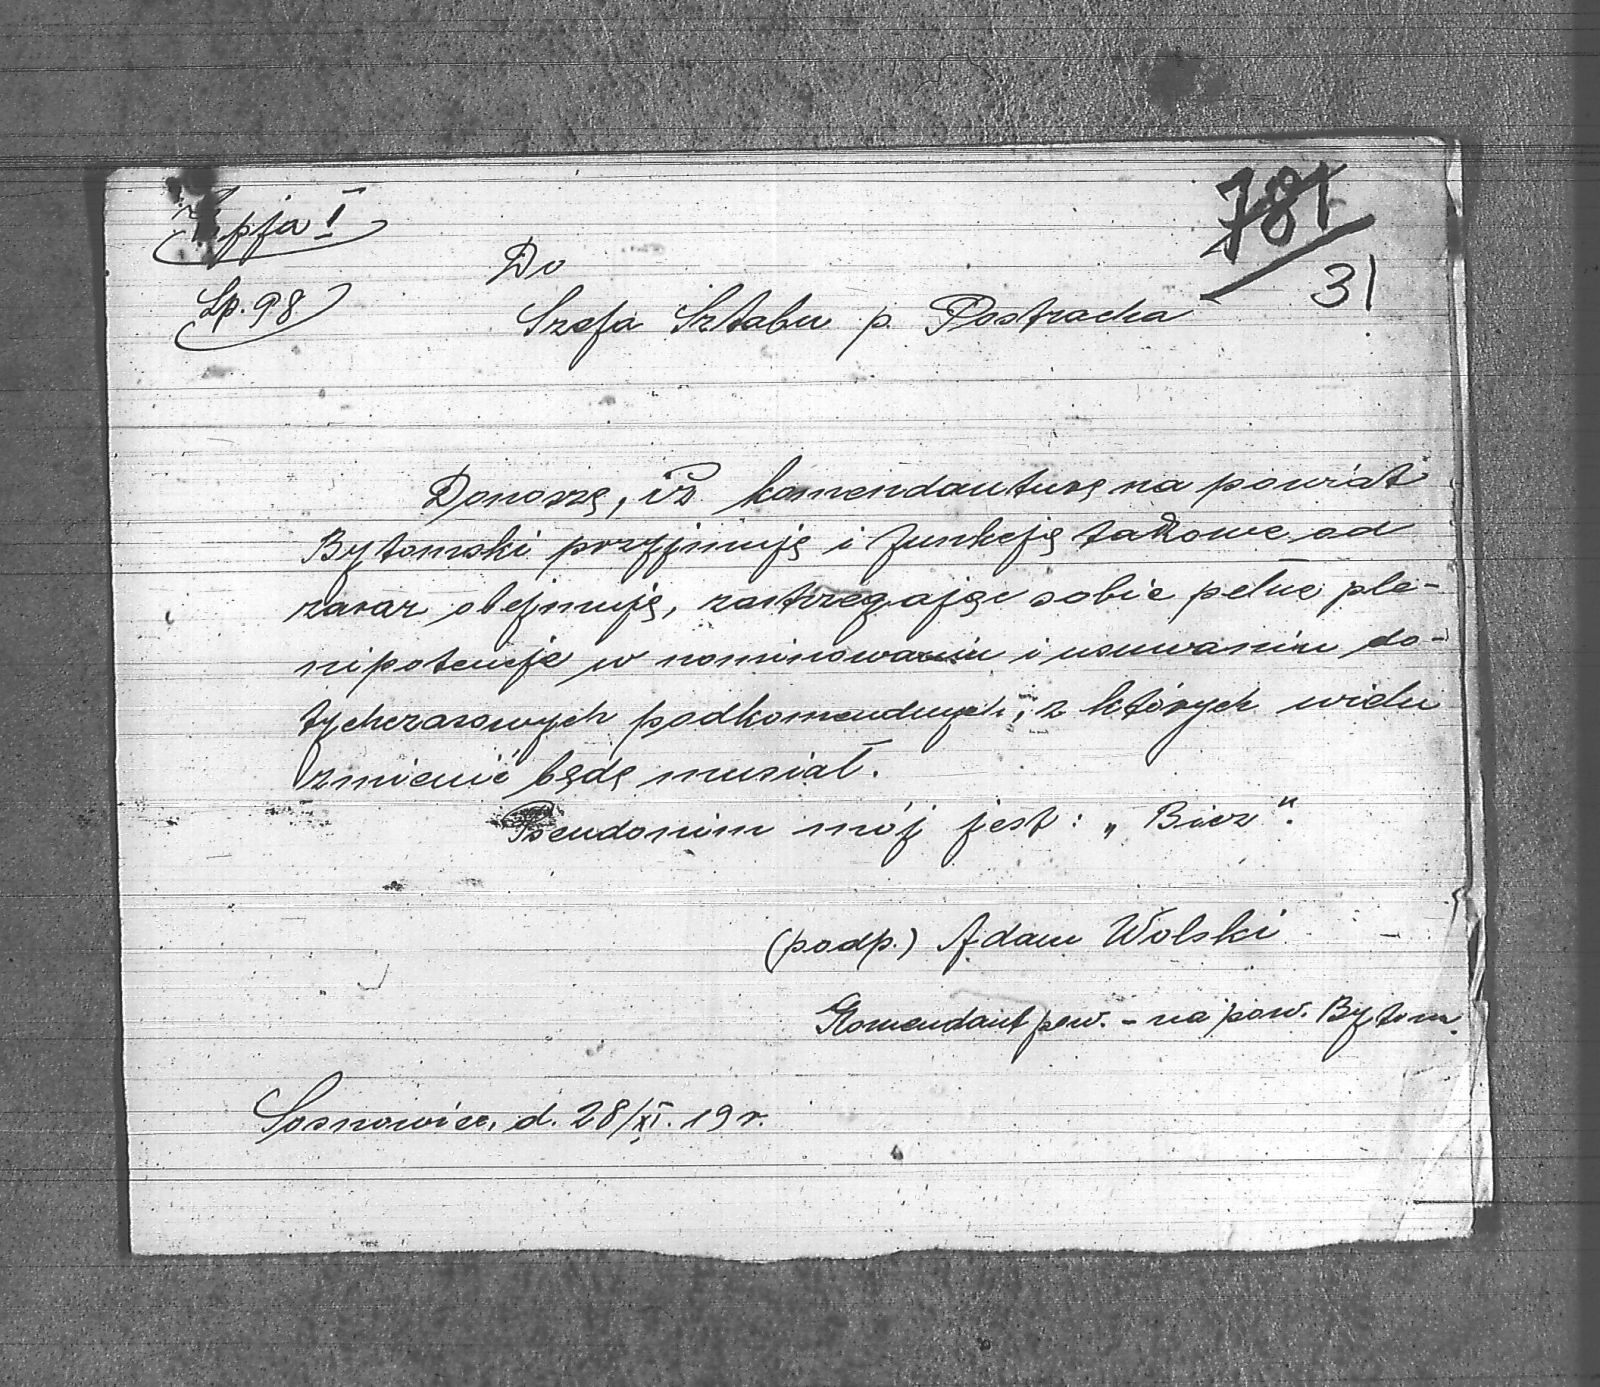 Kopja I
781
Lp. 98
31
Do
Szefa Sztabu p. Postracha
Donoszę, iż komendanturę na powiat
Bytomski przyjmuję i funkcję takowe od
zaraz obejmuję, zastrzegając sobie pełne ple-
nipotencje w nominowaniu i usuwaniu do-
tychczasowych podkomendnych, z których wielu
zmienić będę musiał.
Pseudonim mój jest: „Bicz".
(podp.) Adam Wolski
Komendant pow. - na pow. Bytom.
Sosnowiec, d. 28/XI. 19 r.